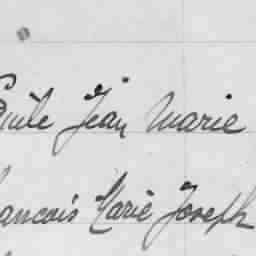 Emile Jean Marie
rancois Marie Joseph